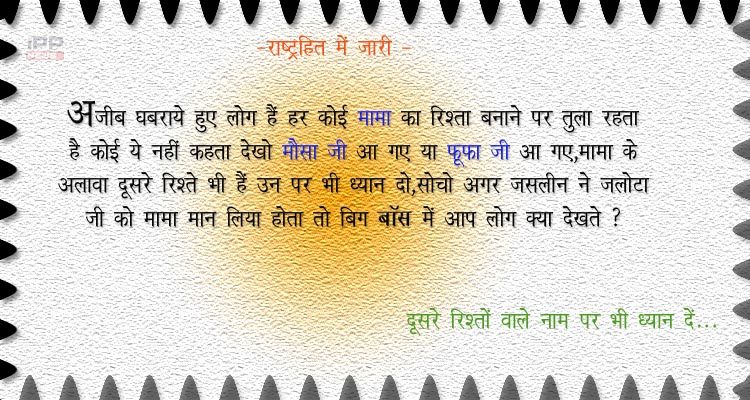 IPP
-राष्ट्रहित में जारी -
अजीब घबराये हुए लोग हैं हर कोई मामा का रिश्ता बनाने पर तुला रहता
है कोई ये नहीं कहता देखो मौसा जी आ गए या फूफा जी आ गए,मामा के
अलावा दूसरे रिश्ते भी हैं उन पर भी ध्यान दो,सोचो अगर जसलीन ने जलोटा
जी को मामा मान लिया होता तो बिग बॉस में आप लोग क्या देखते ?
दूसरे रिश्तों वाले नाम पर भी ध्यान दें...